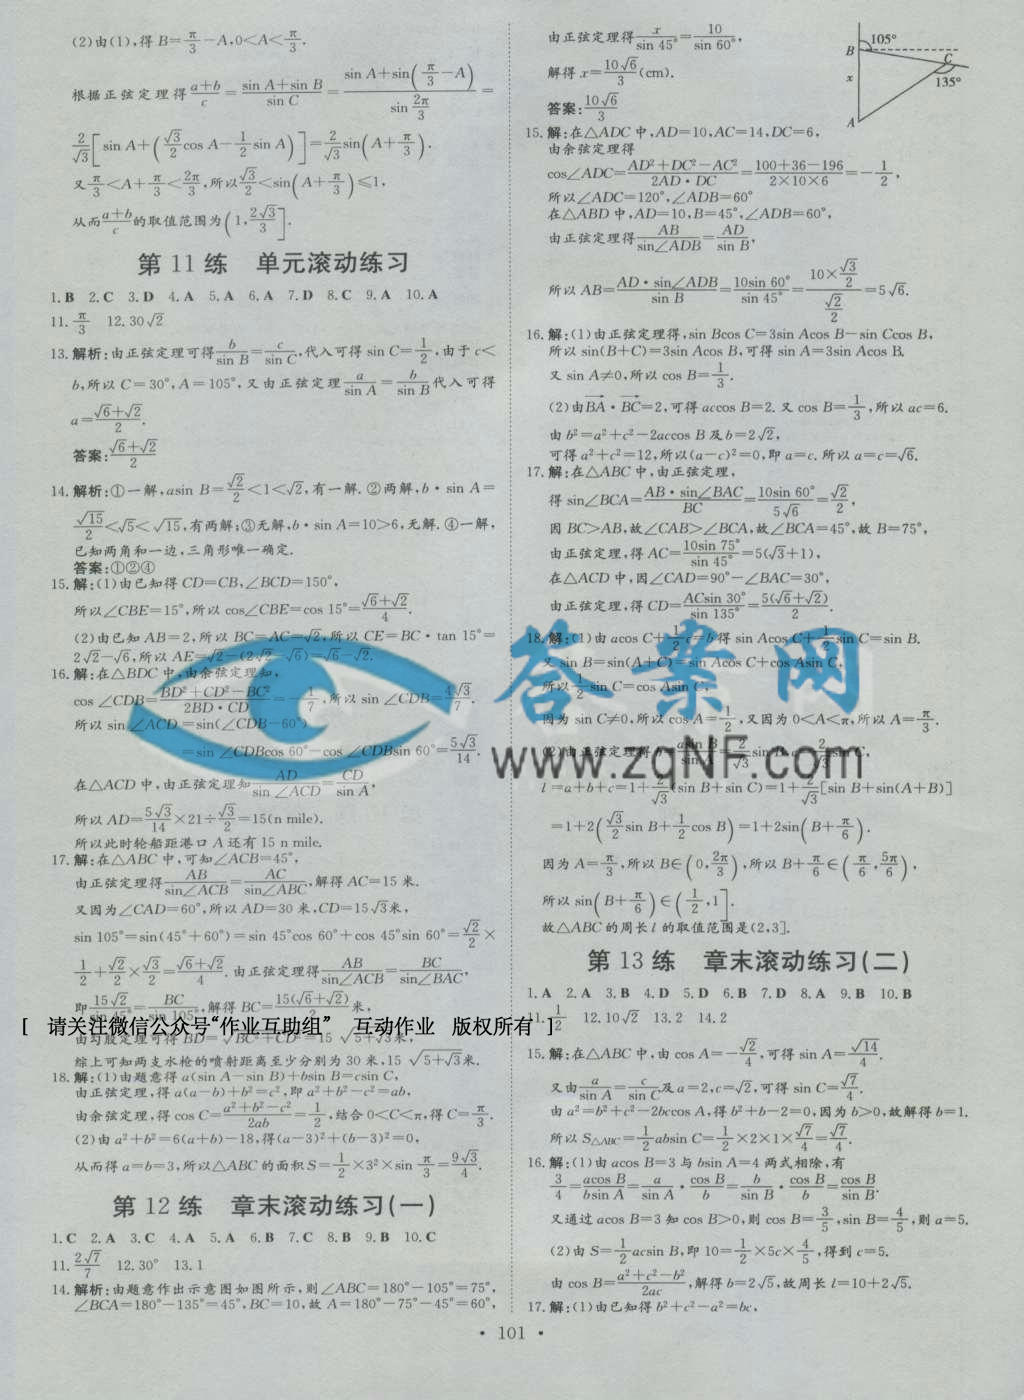 (2)由(1),得B=π/3-A,0<A<π/3.
根据正弦定理得(a+b)/c=(sin A+sin B)/sin C=(sin A+sin(π/3-A))/sin 2π/3=
2/√3[sin A+(√3/2 cos A-1/2 sin A)]=2/√3 sin(A+π/3).
又π/3<A+π/3<2π/3,所以√3/2<sin(A+π/3)≤1,
从而(a+b)/c的取值范围为(1,2√3/3].
第11练 单元滚动练习
1.B 2.C 3.D 4.A 5.A 6.A 7.D 8.C 9.A 10.A
11.π/3 12.30√2
13.解析:由正弦定理可得b/sin B=c/sin C,代入可得sin C=1/2,由于c<
b,所以C=30°,A=105°,又由正弦定理a/sin A=b/sin B代入可得
a=(√6+√2)/2.
答案:(√6+√2)/2
14.解析:①一解,asin B=√2/2<1<√2,有一解.②两解,b·sin A=
√15/2<√5<√15,有两解;③无解,b·sin A=10>6,无解.④一解,
已知两角和一边,三角形唯一确定.
答案:①②④
15.解:(1)由已知得CD=CB,∠BCD=150°,
所以∠CBE=15°,所以cos∠CBE=cos 15°=(√6+√2)/4.
(2)由已知AB=2,所以BC=AC=√2,所以CE=BC·tan 15°=
2√2-√6,所以AE=√2-(2√2-√6)=√6-√2.
16.解:在△BDC中,由余弦定理知,
cos∠CDB=(BD²+CD²-BC²)/(2BD·CD)=-1/7,所以sin∠CDB=4√3/7.
所以sin∠ACD=sin(∠CDB-60°)
=sin∠CDBcos 60°-cos∠CDBsin 60°=5√3/14.
在△ACD中,由正弦定理知AD/sin∠ACD=CD/sin A,
所以AD=5√3/14×21÷√3/2=15(n mile).
所以此时轮船距港口A还有15 n mile.
17.解:在△ABC中,可知∠ACB=45°,
由正弦定理得AB/sin∠ACB=AC/sin∠ABC,解得AC=15米.
又因为∠CAD=60°,所以AD=30米,CD=15√3米,
sin 105°=sin(45°+60°)=sin 45°cos 60°+cos 45°sin 60°=√2/2×
1/2+√2/2×√3/2=(√6+√2)/4,由正弦定理得AB/sin∠ACB=BC/sin∠BAC,
即15√2/sin 45°=BC/sin 105°,解得BC=15(√6+√2)/2米.
[ 请关注微信公众号“作业互助组” 互动作业 版权所有 ]
由勾股定理可得BD=√(CD²+BC²)=15√(5+√3)米,
综上可知两支水枪的喷射距离至少分别为30米,15√(5+√3)米.
18.解:(1)由题意得a(sin A-sin B)+bsin B=csin C,
由正弦定理,得a(a-b)+b²=c²,即a²+b²-c²=ab,
由余弦定理,得cos C=(a²+b²-c²)/2ab=1/2,结合0<C<π,得C=π/3.
(2)由a²+b²=6(a+b)-18,得(a-3)²+(b-3)²=0,
从而得a=b=3,所以△ABC的面积S=1/2×3²×sin π/3=9√3/4.
第12练 章末滚动练习(一)
1.C 2.A 3.C 4.A 5.A 6.B 7.C 8.B 9.B 10.C
11.2√7/7 12.30° 13.1
14.解析:由题意作出示意图如图所示,则∠ABC=180°-105°=75°,
∠BCA=180°-135°=45°,BC=10,故A=180°-75°-45°=60°,
由正弦定理得x/sin 45°=10/sin 60°,
解得x=10√6/3(cm).
答案:10√6/3
B
105°
C
135°
x
A
15.解:在△ADC中,AD=10,AC=14,DC=6,
由余弦定理得
cos∠ADC=(AD²+DC²-AC²)/(2AD·DC)=(100+36-196)/(2×10×6)=-1/2,
所以∠ADC=120°,∠ADB=60°
在△ABD中,AD=10,B=45°,∠ADB=60°,
由正弦定理得AB/sin∠ADB=AD/sin B,
所以AB=AD·sin∠ADB/sin B=10sin 60°/sin 45°=(10×√3/2)/(√2/2)=5√6.
16.解:(1)由正弦定理得,sin Bcos C=3sin Acos B-sin Ccos B,
所以sin(B+C)=3sin Acos B,可得sin A=3sin Acos B.
又sin A≠0,所以cos B=1/3.
(2)由BA·BC=2,可得accos B=2.又cos B=1/3,所以ac=6.
由b²=a²+c²-2accos B及b=2√2,
可得a²+c²=12,所以(a-c)²=0,即a=c.所以a=c=√6.
17.解:在△ABC中,由正弦定理,
得sin∠BCA=AB·sin∠BAC/BC=10sin 60°/5√6=√2/2,
因BC>AB,故∠CAB>∠BCA,故∠BCA=45°,故B=75°,
由正弦定理,得AC=10sin 75°/sin 45°=5(√3+1),
在△ACD中,因∠CAD=90°-∠BAC=30°,
由正弦定理,得CD=ACsin 30°/sin 135°=5(√6+√2)/2.
18.解:(1)由acos C+1/2c=b得sin Acos C+1/2sin C=sin B.
又sin B=sin(A+C)=sin Acos C+cos Asin C,
所以1/2sin C=cos Asin C,
因为sin C≠0,所以cos A=1/2,又因为0<A<π,所以A=π/3.
(2)由正弦定理得b=asin B/sin A=2/√3 sin B,c=2/√3 sin C,
l=a+b+c=1+2/√3(sin B+sin C)=1+2/√3[sin B+sin(A+B)]
=1+2(√3/2 sin B+1/2 cos B)=1+2sin(B+π/6).
因为A=π/3,所以B∈(0,2π/3),所以B+π/6∈(π/6,5π/6),
所以sin(B+π/6)∈(1/2,1].
故△ABC的周长l的取值范围是(2,3].
第13练 章末滚动练习(二)
1.A 2.A 3.B 4.A 5.A 6.B 7.D 8.A 9.A 10.B
11.1/2 12.10√2 13.2 14.2
15.解:在△ABC中,由cos A=-√2/4,可得sin A=√14/4.
又由a/sin A=c/sin C及a=2,c=√2,可得sin C=√7/4.
由a²=b²+c²-2bccos A,得b²+b-2=0,因为b>0,故解得b=1.
所以S△ABC=1/2absin C=1/2×2×1×√7/4=√7/4.
16.解:(1)由acos B=3与bsin A=4两式相除,有
3/4=acos B/bsin A=a/sin A·cos B/b=b/sin B·cos B/b=cos B/sin B.
又通过acos B=3知cos B>0,则cos B=3/5,sin B=4/5,则a=5.
(2)由S=1/2acsin B,即10=1/2×5c×4/5,得到c=5.
由cos B=(a²+c²-b²)/2ac,解得b=2√5,故周长l=10+2√5.
17.解:(1)由已知得b²+c²-a²=bc,
答案网
www.zqNF.com
· 101 ·